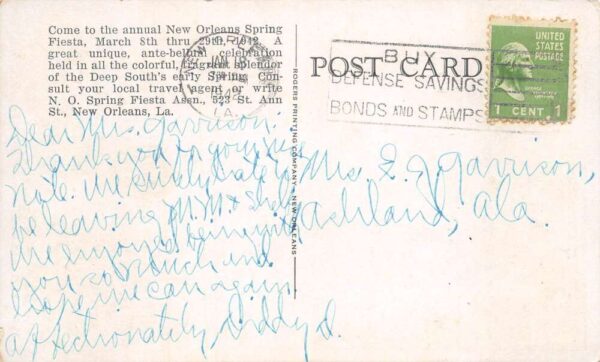 Come to the annual New Orleans Spring
Fiesta, March 8th thru 29th, 1942. A
great unique, ante-bellum celebration
held in all the colorful, fragrant splendor
of the Deep South's early Spring. Con-
sult your local travel agent or write
N. O. Spring Fiesta Assn., 523 St. Ann
St., New Orleans, La.
NEW ORLEANS
JAN
1942
LA.
POST CARD
BUY
DEFENSE SAVINGS
BONDS AND STAMPS
UNITED
STATES
POSTAGE
1 CENT 1
ROGERS PRINTING COMPANY - NEW ORLEANS
Dear Mrs. Garrison:
Thank you for your
note. We surely hate to
be leaving
We enjoyed being with
you so much and
hope we can again
affectionately,
Mrs. E. J. Garrison,
Ashland, Ala.